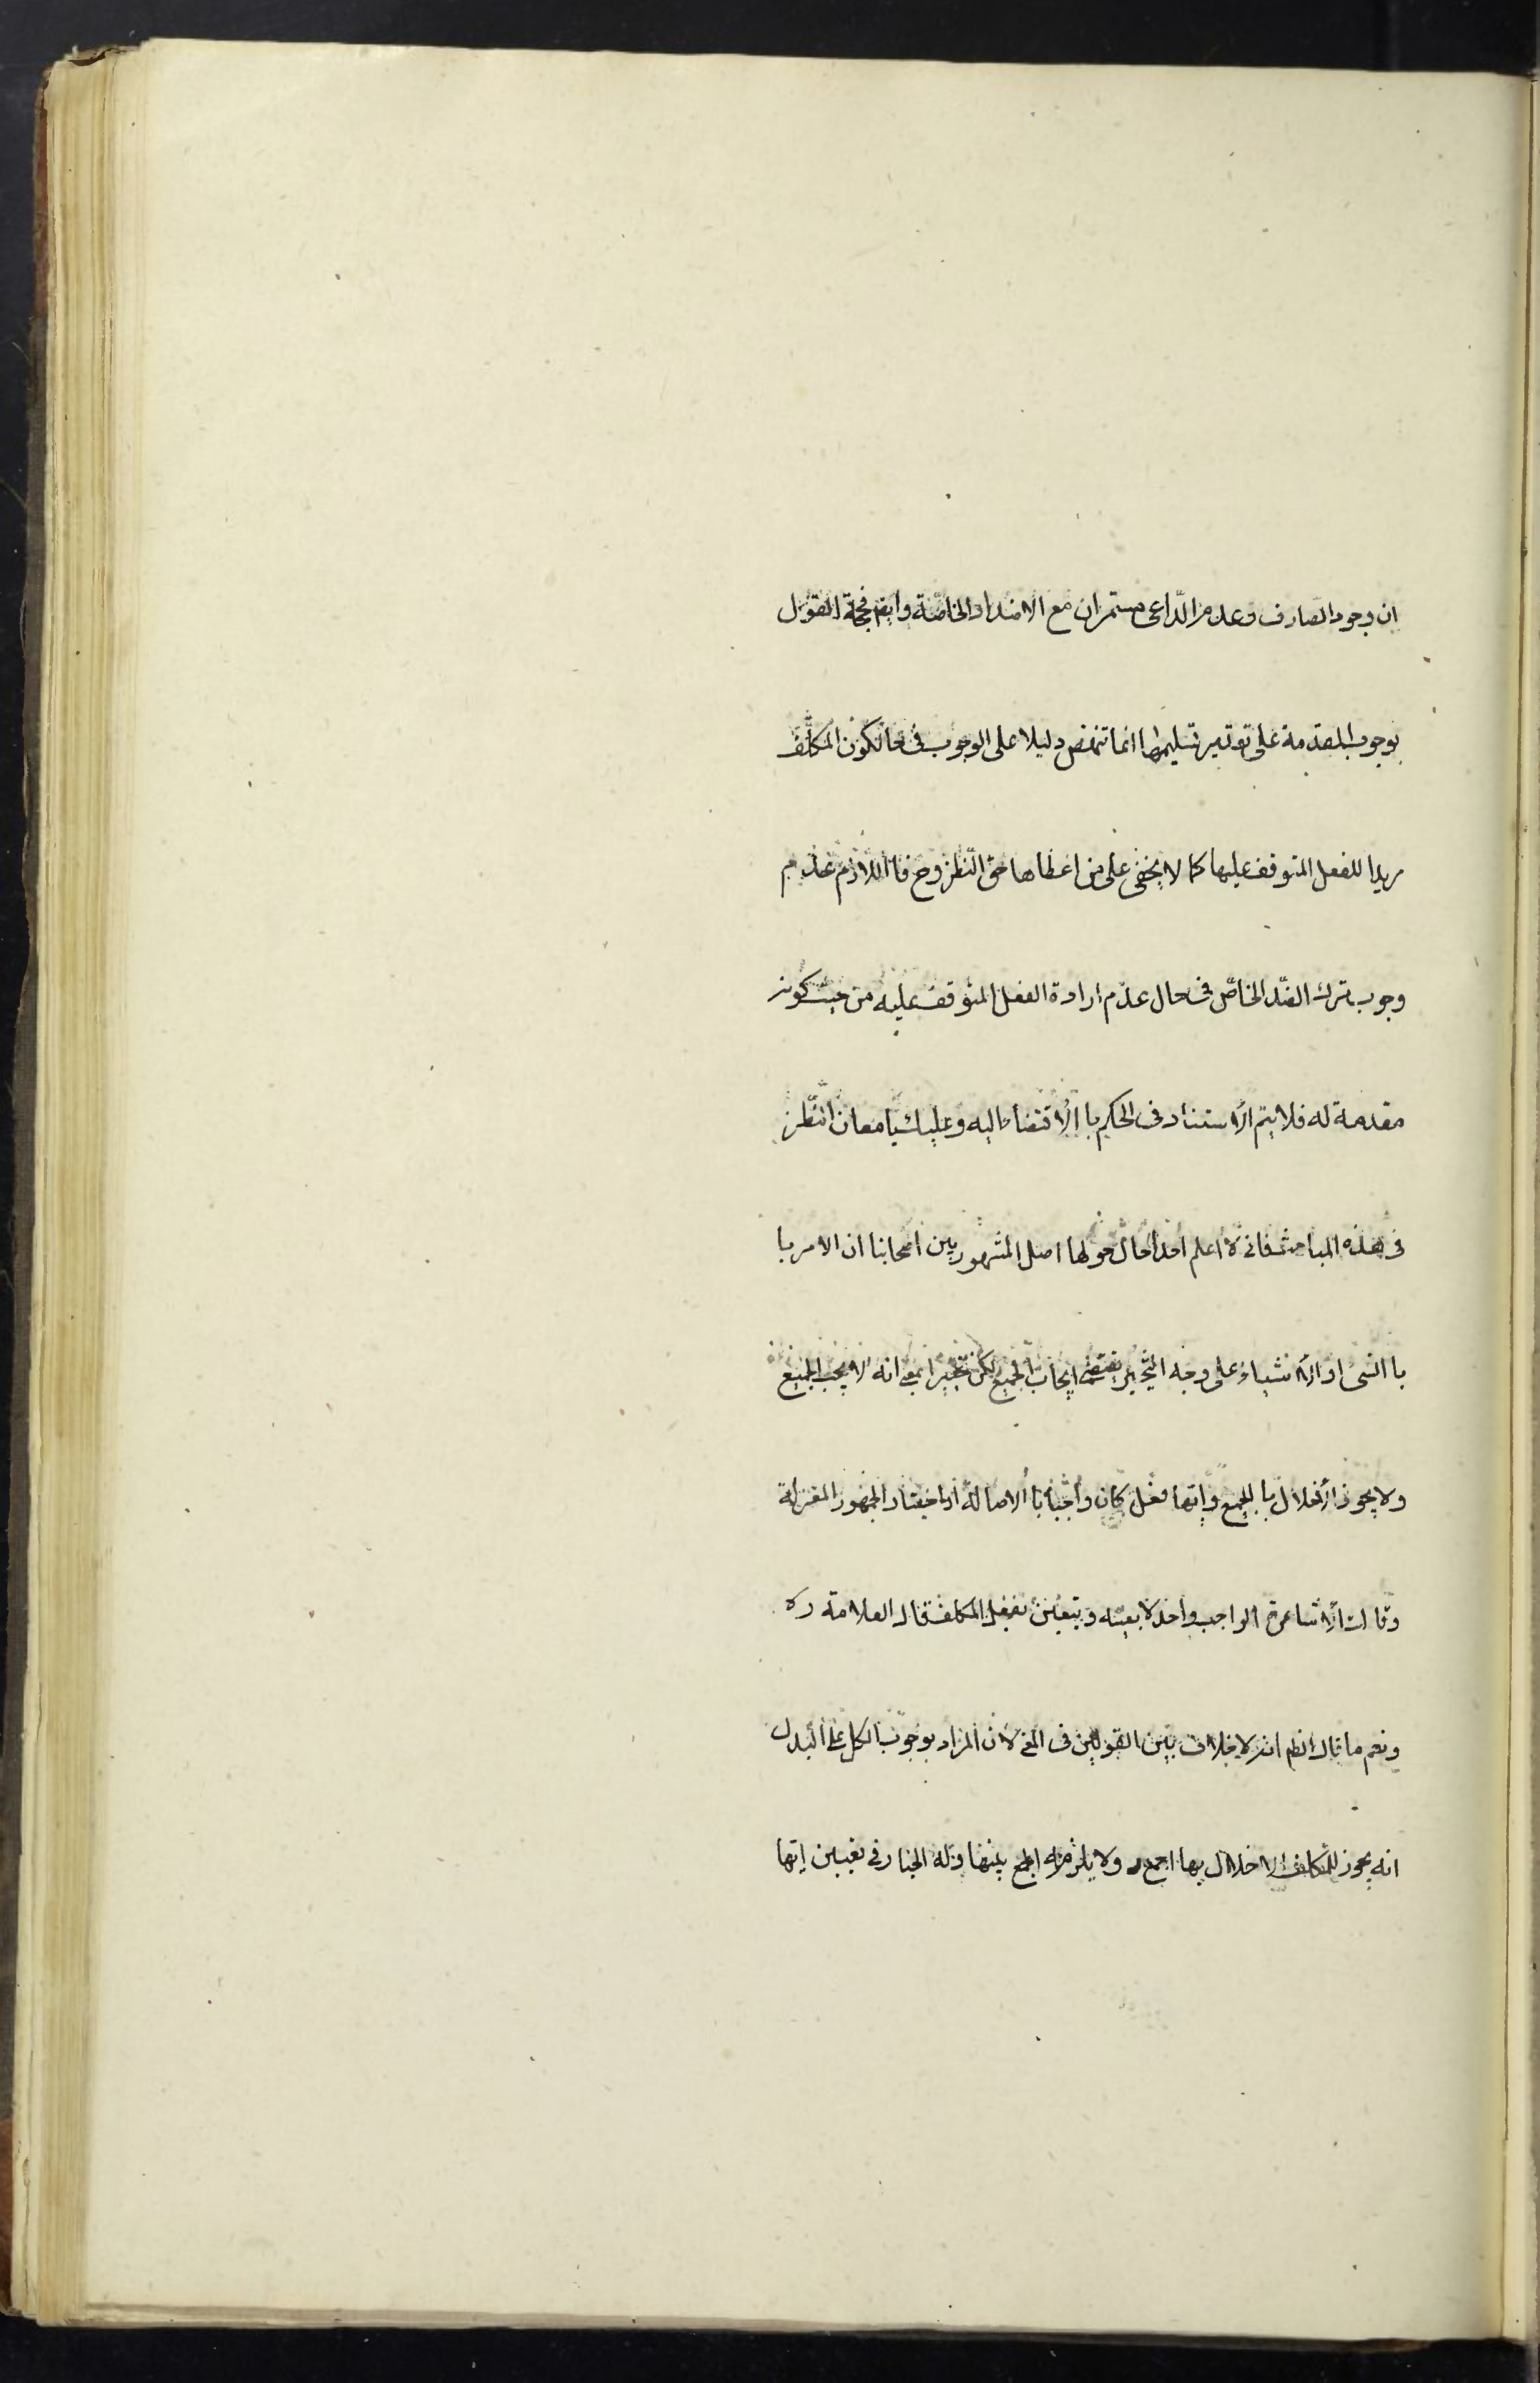 ان وجود الصارف وعدم الدّاعى مستمران مع الاضداد الخاصّة وايضم فحجة القول
بوجوب المقدمة على تقدير تسليمها انما تنهض دليلا على الوجوب فى حال كون المكلّف
مريدا للفعل المتوقف عليها كما لا يخفى على من اعطاها حق النّظر وح فاللازم عدم
وجوب ترك الضّد الخاصّ فى حال عدم ارادة الفعل المتوقف عليه من حيث كونه
مقدمة له فلا يتم الاستناد فى الحكم با الاقتضاء اليه وعليك بامعان النّظر
فى هذه المباحث فانى لا اعلم احدا حال حولها اصل المشهور بين اصحابنا ان الامر با
با الشئ او الاشياء على وجه التّخيير يقتضى ايجاب الجميع لكن تخييرا بمعنى انه لا يجب الجميع
ولا يجوز الاخلال با لجميع وايّها فعل كان واجبا با الاصالة اذا اختيار الجمهور المعتزلة
وقالت الاشاعرة الواجب واحد لا بعينه ويتعين بفعل المكلف قال العلامة ره
ونعم ما قال الظم انه لا خلاف بين القولين فى المعنى لان المراد بوجوب الكل على البدل
انه يجوز للمكلف الاخلال بها اجمع ولا يلزمه الجمع بينها وله الخيار فى تعيين ايّها